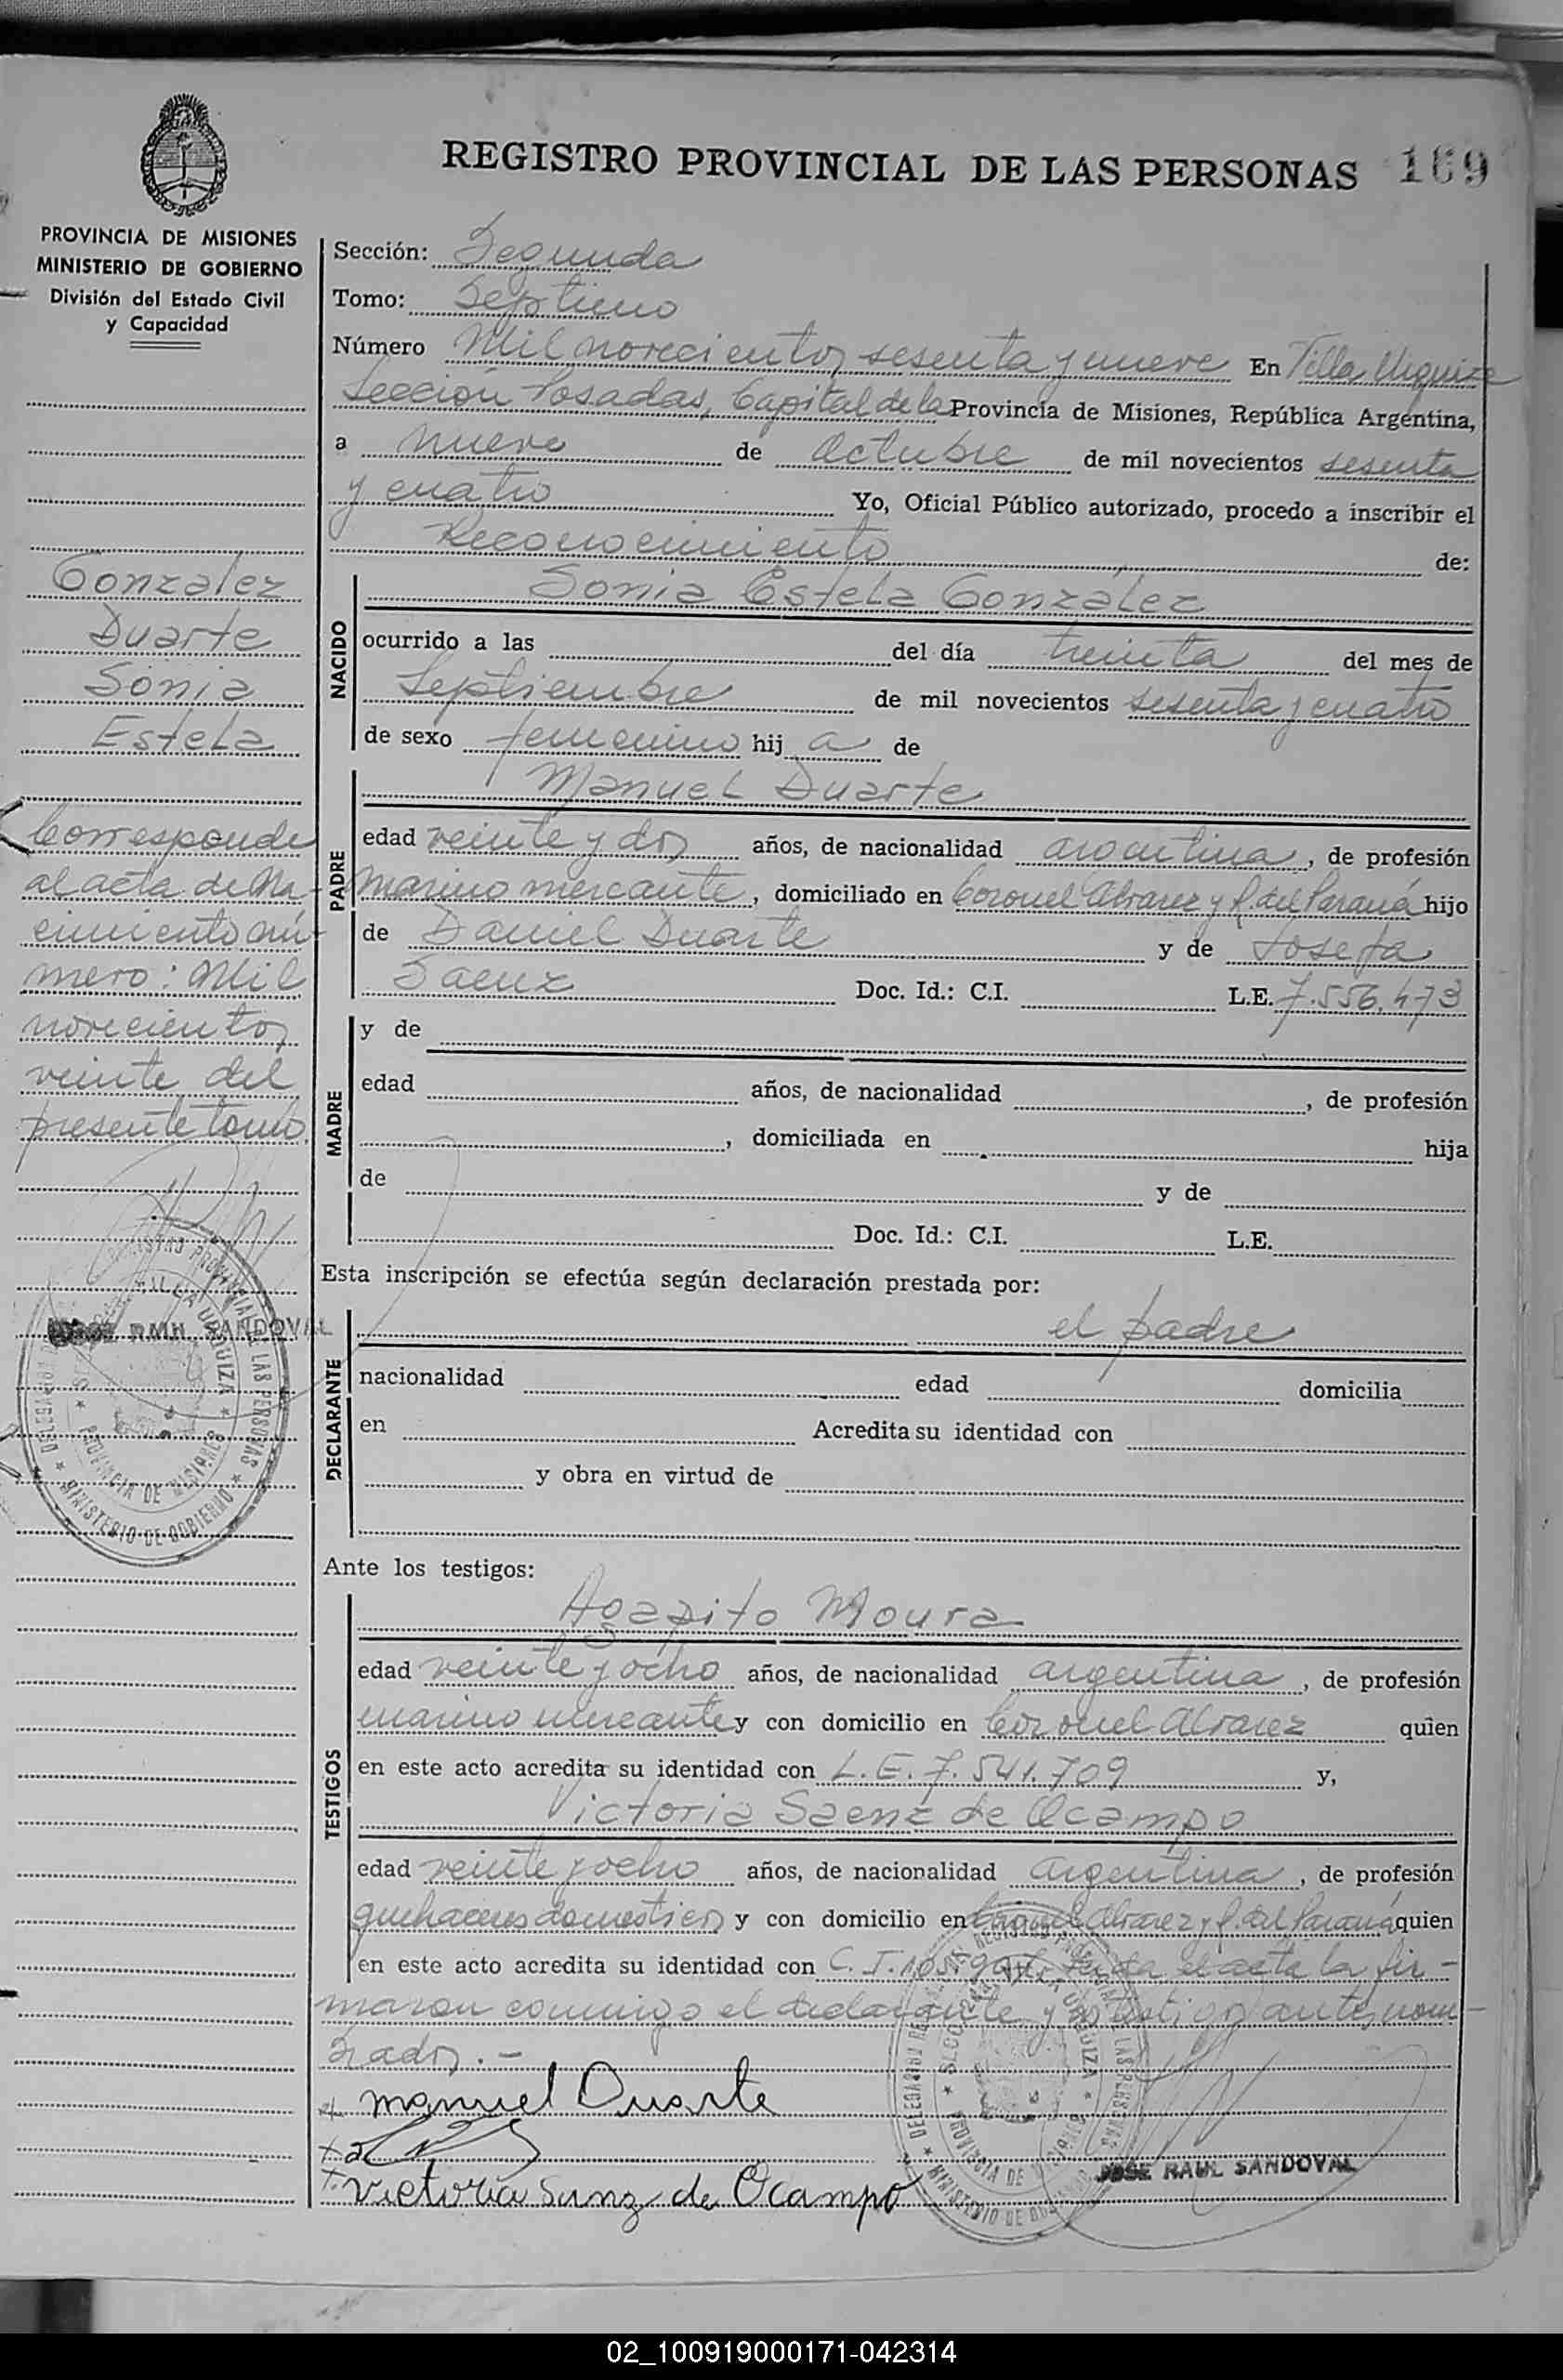 REGISTRO PROVINCIAL DE LAS PERSONAS 169
PROVINCIA DE MISIONES
MINISTERIO DE GOBIERNO
División del Estado Civil
y Capacidad
Gonzalez
Duarte
Sonia
Estela
Corresponde
al acta de Na-
cimiento nú-
mero: Mil
novecientos
veinte del
presente tomo.
REGISTRO PROVINCIAL DE LAS PERSONAS
VILLA URQUIZA
PROVINCIA DE MISIONES
MINISTERIO DE GOBIERNO
SANDOVAL
Sección: Segunda
Tomo: Septimo
Número Mil novecientos sesenta y nueve En Villa Urquiza
Sección Posadas, Capital de la Provincia de Misiones, República Argentina,
a nueve de Octubre de mil novecientos sesenta
y cuatro Yo, Oficial Público autorizado, procedo a inscribir el
Reconocimiento de:
NACIDO
Sonia Estela González
ocurrido a las del día treinta del mes de
Septiembre de mil novecientos sesenta y cuatro
de sexo femenino hij a de
PADRE
Manuel Duarte
edad veinte y dos años, de nacionalidad argentina, de profesión
marino mercante, domiciliado en Coronel Alvarez y R. del Paraná hijo
de Daniel Duarte y de Josefa
Saenz Doc. Id.: C.I. L.E. 7.556.473
MADRE
y de
edad años, de nacionalidad , de profesión
, domiciliada en hija
de y de
Doc. Id.: C.I. L.E.
Esta inscripción se efectúa según declaración prestada por:
DECLARANTE
el padre
nacionalidad edad domicilia
en Acredita su identidad con
y obra en virtud de
Ante los testigos:
TESTIGOS
Agapito Moura
edad veinte y ocho años, de nacionalidad argentina, de profesión
marino mercante y con domicilio en Coronel Alvarez quien
en este acto acredita su identidad con L.E. 7.541.709 y,
Victoria Saenz de Ocampo
edad veinte y ocho años, de nacionalidad argentina, de profesión
quehaceres domesticos y con domicilio en Coronel Alvarez y R. del Paraná quien
en este acto acredita su identidad con C.I. Leida el acta la fir-
maron conmigo el declarante y los testigos antes nom-
brados.-
x manuel Duarte
x Victoria Sanz de Ocampo
JOSE RAUL SANDOVAL
02_100919000171-042314